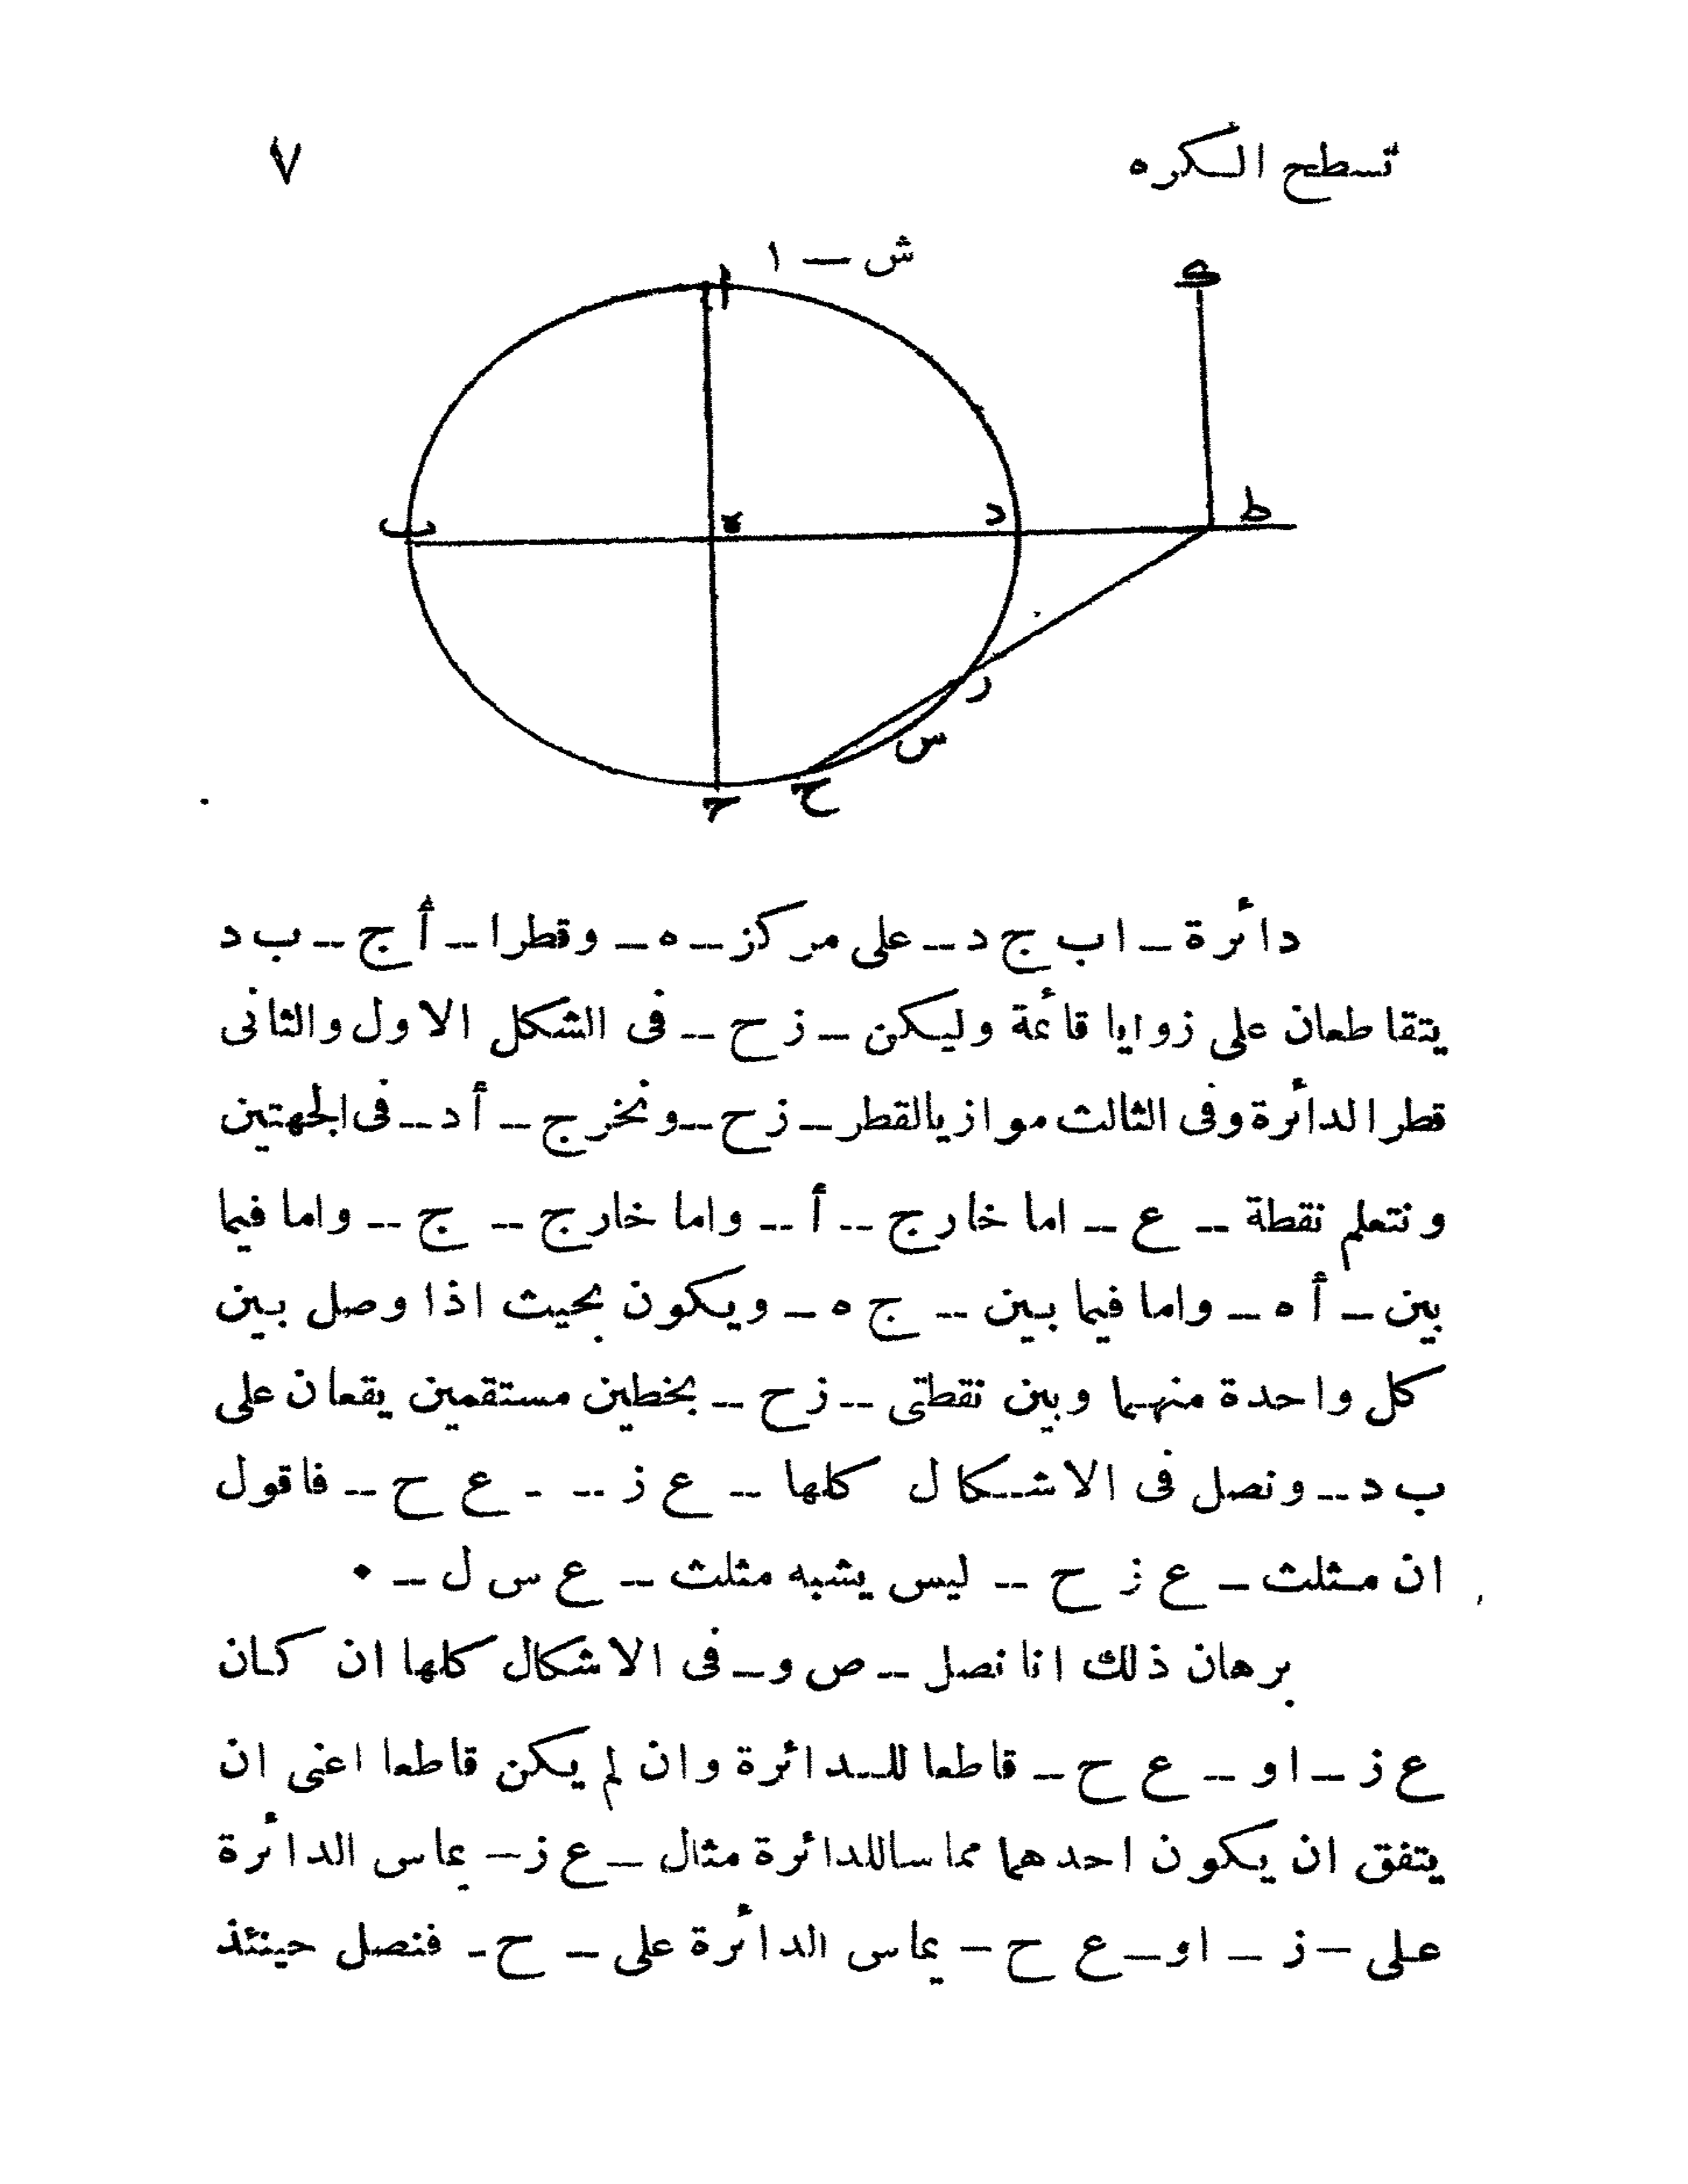 تسطح الكره
٧
ش — ١
ا
ط
د
ب
ر
س
ح
ح
دائرة — ا ب ج د — على مركز — ه — وقطرا — أ ج — ب د
يتقاطعان على زوايا قائمة وليكن — ز ح — فى الشكل الاول والثانى
قطر الدائرة وفى الثالث موازيا لقطر — ز ح — ونخرج — أ د — فى الجهتين
ونتعلم نقطة — ع — اما خارج — أ — واما خارج — ج — واما فيما
بين — أ ه — واما فيما بين — ج ه — ويكون بحيث اذا وصل بين
كل واحدة منهما وبين نقطتى — ز ح — بخطين مستقمين يقعان على
ب د — ونصل فى الاشكال كلها — ع ز — - ع ح — فاقول
ان مثلث — ع ز ح — ليس يشبه مثلث — ع س ل — ٠
برهان ذلك انا نصل — ص و — فى الاشكال كلها ان كان
ع ز — او — ع ح — قاطعا للدائرة وان لم يكن قاطعا اعنى ان
يتفق ان يكون احدهما مماسا للدائرة مثال — ع ز — يماس الدائرة
على — ز — او — ع ح — يماس الدائرة على — ح - فنصل حينئذ